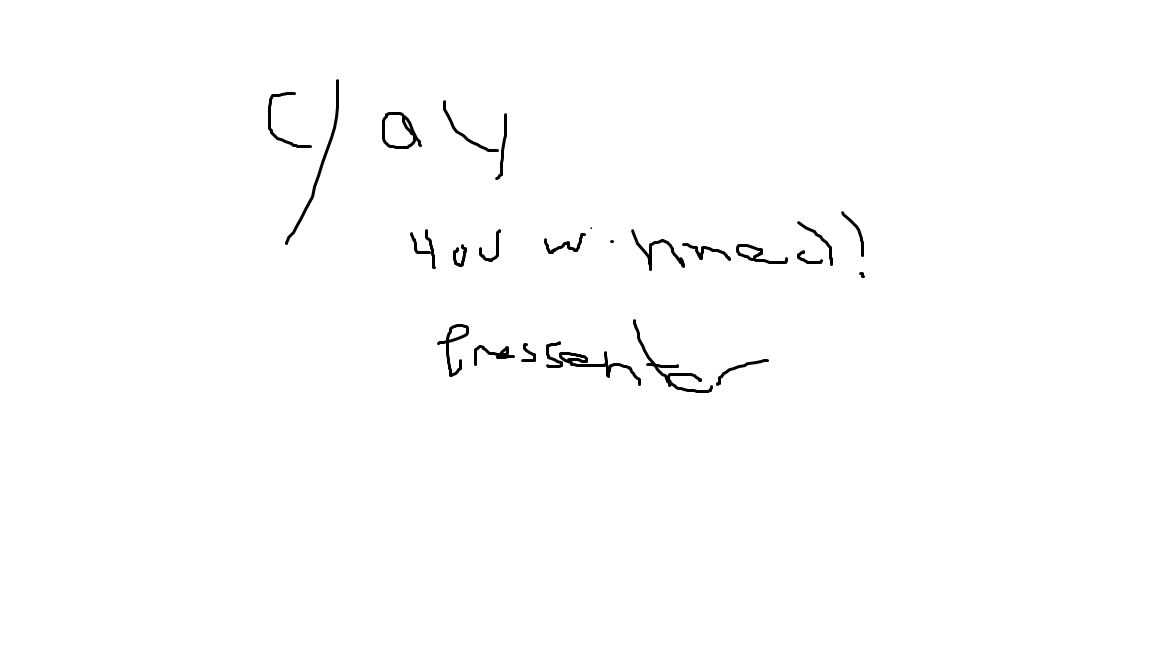 yay
you winned!
Press enter